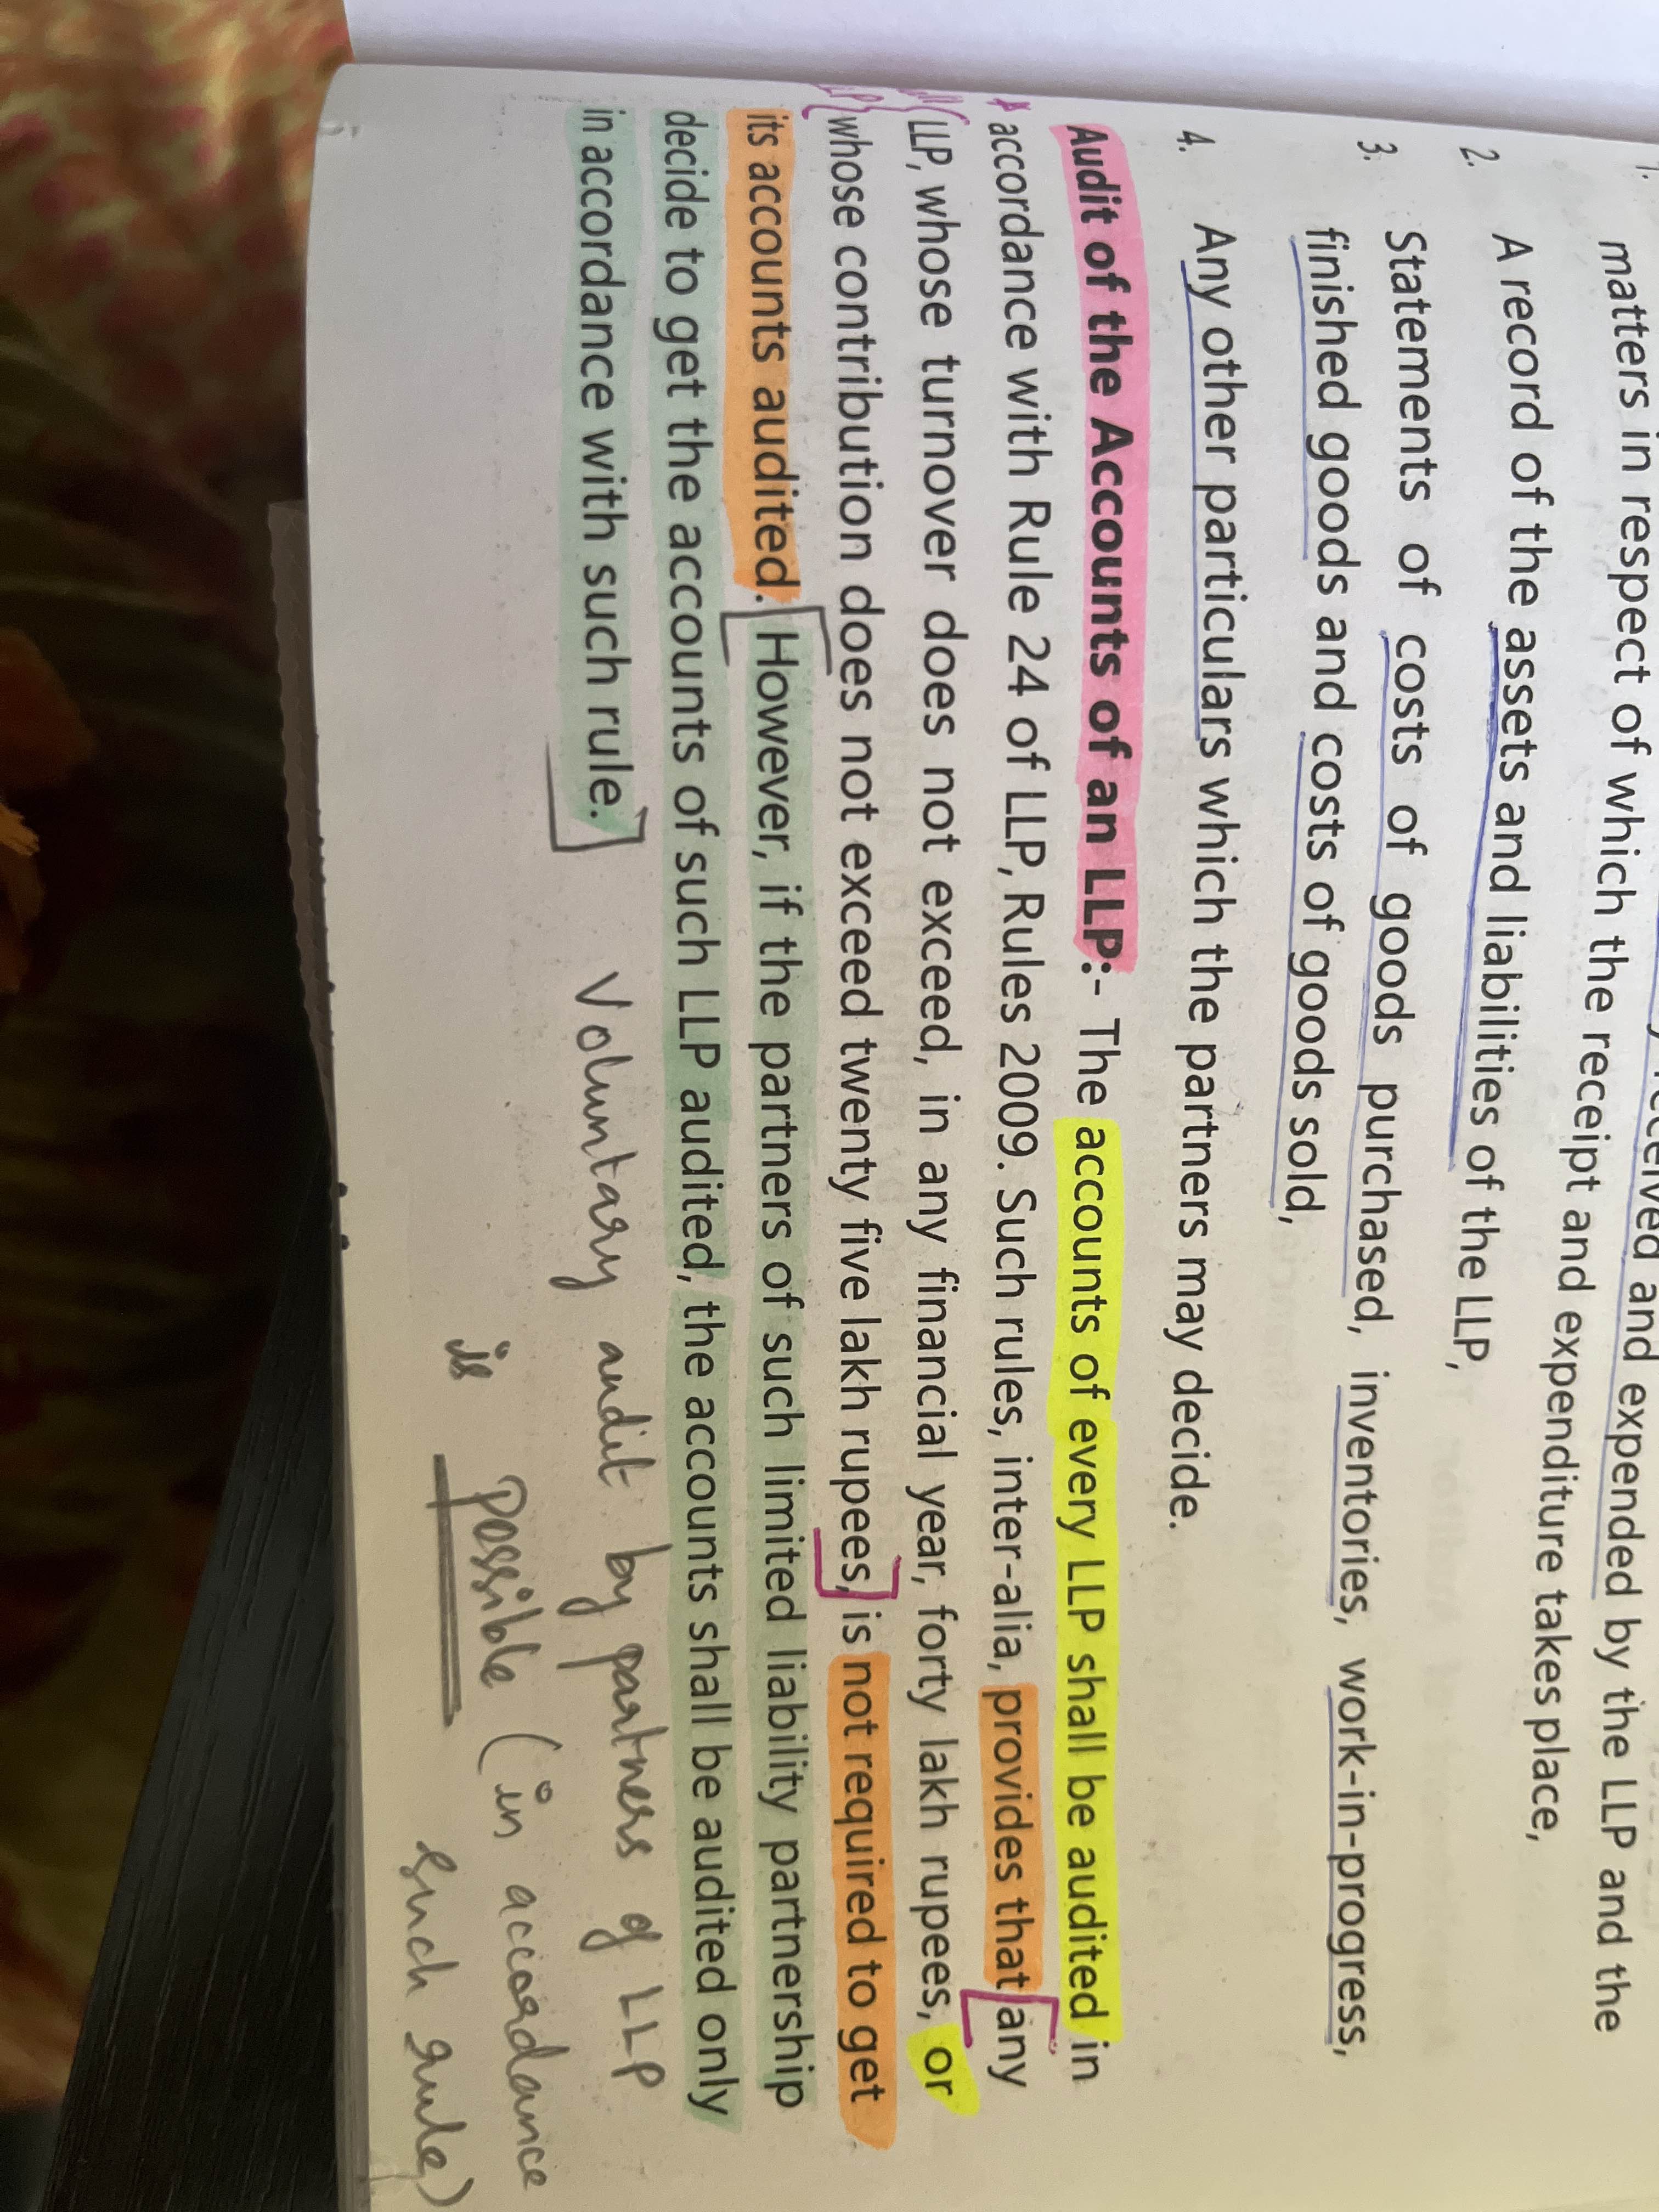 received and expended by the LLP and the
matters in respect of which the receipt and expenditure takes place,
2. A record of the assets and liabilities of the LLP,
3. Statements of costs of goods purchased, inventories, work-in-progress,
finished goods and costs of goods sold,
4. Any other particulars which the partners may decide.
Audit of the Accounts of an LLP:- The accounts of every LLP shall be audited in
accordance with Rule 24 of LLP, Rules 2009. Such rules, inter-alia, provides that any
LLP, whose turnover does not exceed, in any financial year, forty lakh rupees, or
whose contribution does not exceed twenty five lakh rupees, is not required to get
its accounts audited. However, if the partners of such limited liability partnership
decide to get the accounts of such LLP audited, the accounts shall be audited only
in accordance with such rule.
Voluntary audit by partners of LLP
is possible (in accordance
such rule)